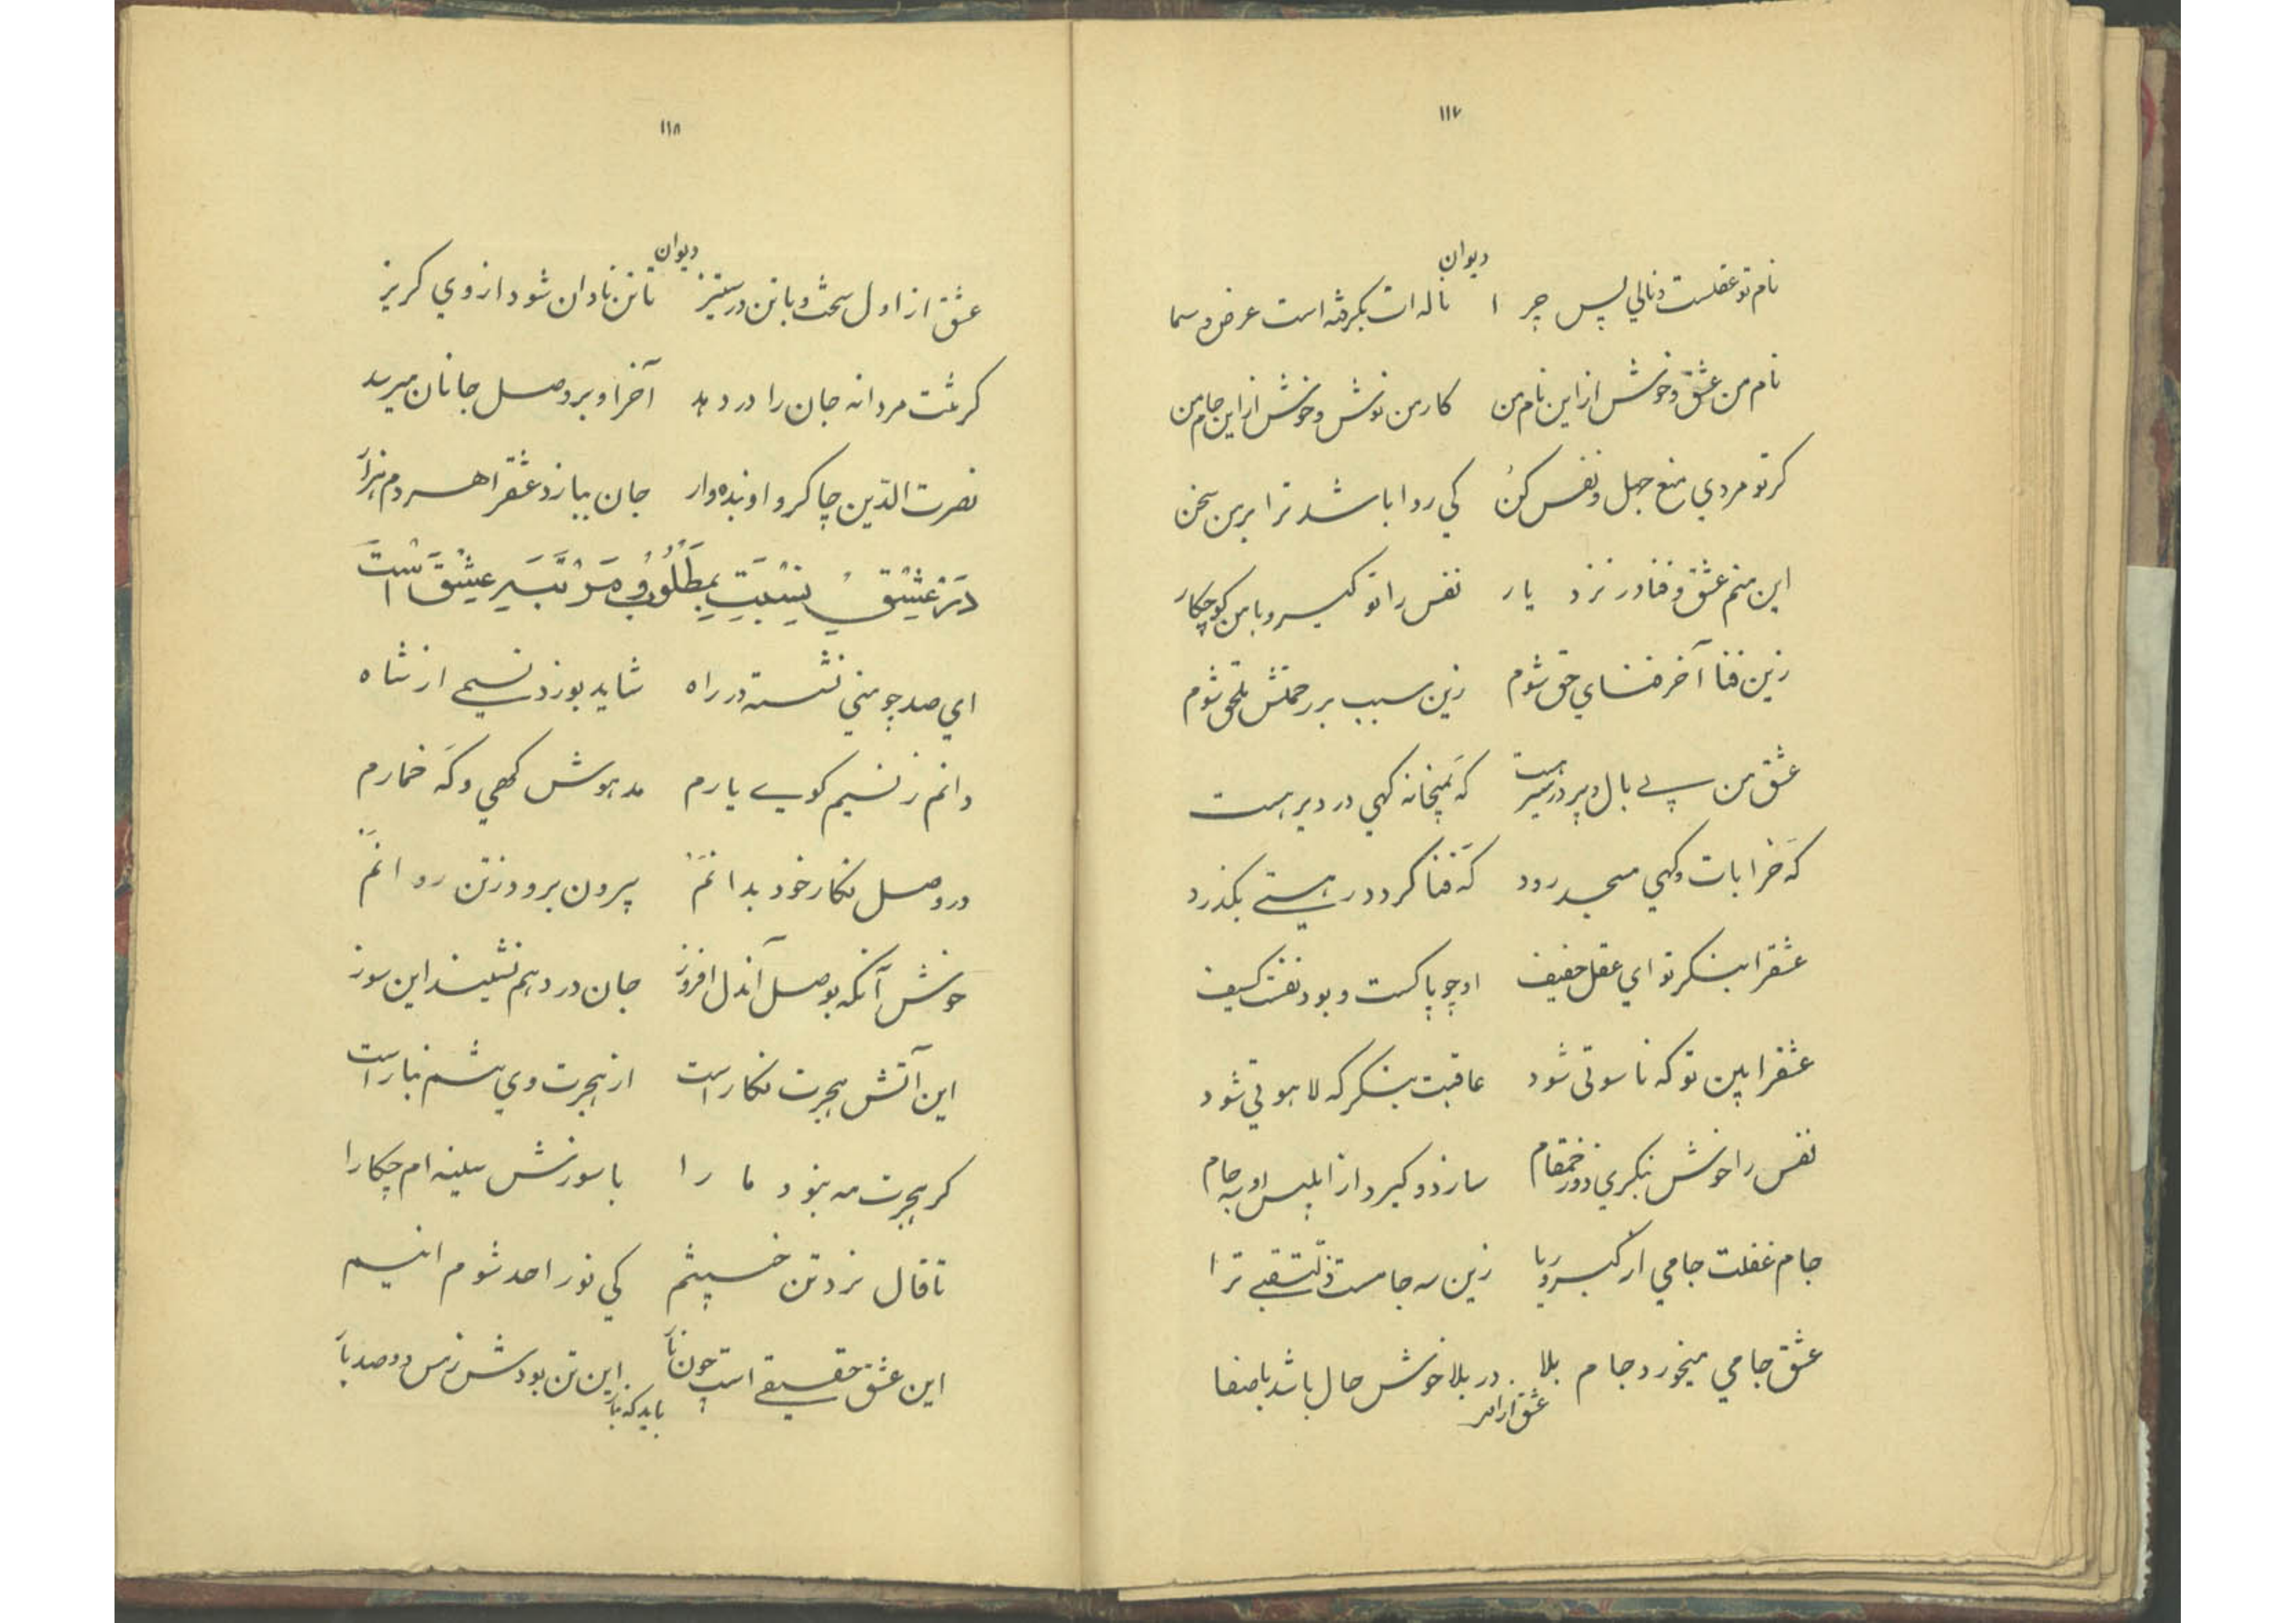 ۱۱۷
دیوان
نام تو عقلست و نالی پس چرا ناله ات بگرفته است عرض و سما
نام من عشق و خوش از این نام من کار من نوش و خوش از این جام من
کر تو مردی منع جهل و نفس کن کی روا باشد ترا برمن سخن
این منم عشق و فنا در نزد یار نفس را تو گیر و با من کو چکار
زین فنا آخر فنای حق شوم زین سبب بر رحمتش ملحق شوم
عشق من بی بال و پر در سیر هست که بمیخانه کهی در دیر هست
که خرابات و کهی مسجد رود که فنا کردد ر هستی بکذرد
عشقرا بنکر تو ای عقل خفیف او چو پاکست و بود نفست کسیف
عشقرا بین تو که ناسوتی شود عاقبت بنکر که لاهوتی شود
نفس را خوش بنکری در مقام سازد و کیرد از ابلیس او سه جام
جام غفلت جامی از کبر و ریا زین سه جامست ذلت عقبی ترا
عشق جامی میخورد جام بلا در بلا خوش حال باشد با صفا
عشق از اول
۱۱۸
دیوان
عشق از اول سخت و با تن در ستیز تا تن نادان شود از وی کریز
کر تنت مردانه جان را در دهد آخر او بر وصل جانان میرسد
نصرت الدّین چاکر و او بنده وار جان ببازد عشقرا هر دم هزار
در عشق نسبت بمطلوب و مراتب سیر عشق است
ای صد چو منی نشسته در راه شاید بوزد نسیمی از شاه
دانم ز نسیم کوی یارم مدهوش کهی و که خمارم
در وصل نکار خود بدانم بیرون برود ز تن روانم
خوش آنکه بوصل آندل افروز جان در دهم نشیند این سوز
این آتش هجرت نکار است از هجرت وی بشم نبار است
کر هجرت مه نبود ما را با سوزش سینه ام چکارا
تا قال نزد تن خسیسیم کی نور احد شوم انیسم
این عشق حقیقی است چون نار این تن بودش ز مس دو صد بار
باید که بنار